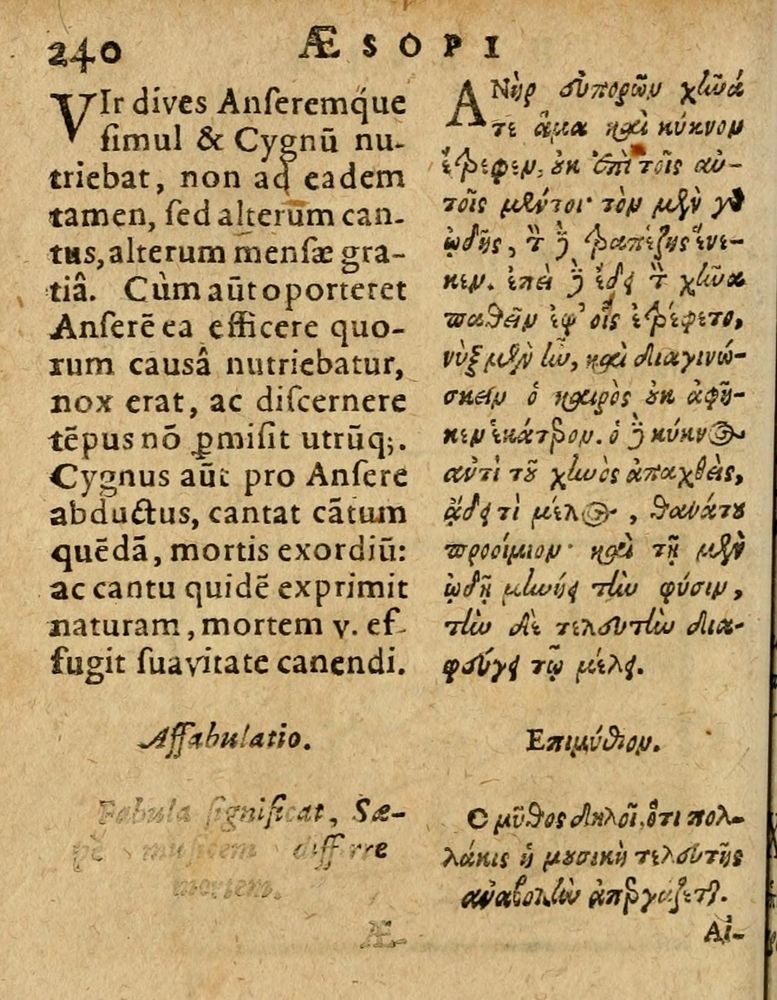 240 ÆSOPI
VIr dives Anseremque
simul & Cygnū nu-
triebat, non ad eadem
tamen, sed alterum can-
tus, alterum mensæ gra-
tiâ. Cùm aūt oporteret
Anserē ea efficere quo-
rum causâ nutriebatur,
nox erat, ac discernere
tēpus nō ꝑmisit utrūq;.
Cygnus aūt pro Ansere
abductus, cantat cātum
quēdā, mortis exordiū:
ac cantu quidē exprimit
naturam, mortem v. ef-
fugit suavitate canendi.
Affabulatio.
Fabula significat, Sæ-
pē musicem differre
mortem.
Æ-
ΑΝὴρ εὐπορῶν χῆνά
τε ἅμα καὶ κύκνον
ἔτρεφεν, οὐκ ἐπὶ τοῖς αὐ-
τοῖς μέντοι· τὸν μὲν γὸ
ᾠδῆς, τ δὲ τραπέζης ἕνε-
κεν. ἐπεὶ δὲ ἔδει τ χῆνα
παθεῖν ἐφ' οἷς ἐτρέφετο,
νὺξ μὲν ἦν, καὶ διαγινώ-
σκειν ὁ καιρὸς οὐκ ἀφῆ-
κεν ἑκάτερον. ὁ δὲ κύκνος
ἀντὶ τοῦ χηνὸς ἀπαχθεὶς,
ᾄδει τὶ μέλος, θανάτου
προοίμιον· καὶ τῇ μὲν
ᾠδῇ μηνύει τὴν φύσιν,
τὴν δὲ τελευτὴν δια-
φεύγει τῷ μέλει.
Επιμύθιον.
Ο μῦθος δηλοῖ, ὅτι πολ-
λάκις ἡ μουσικὴ τελευτῆς
ἀναβολὴν ἀπεργάζεται.
Αἴ-